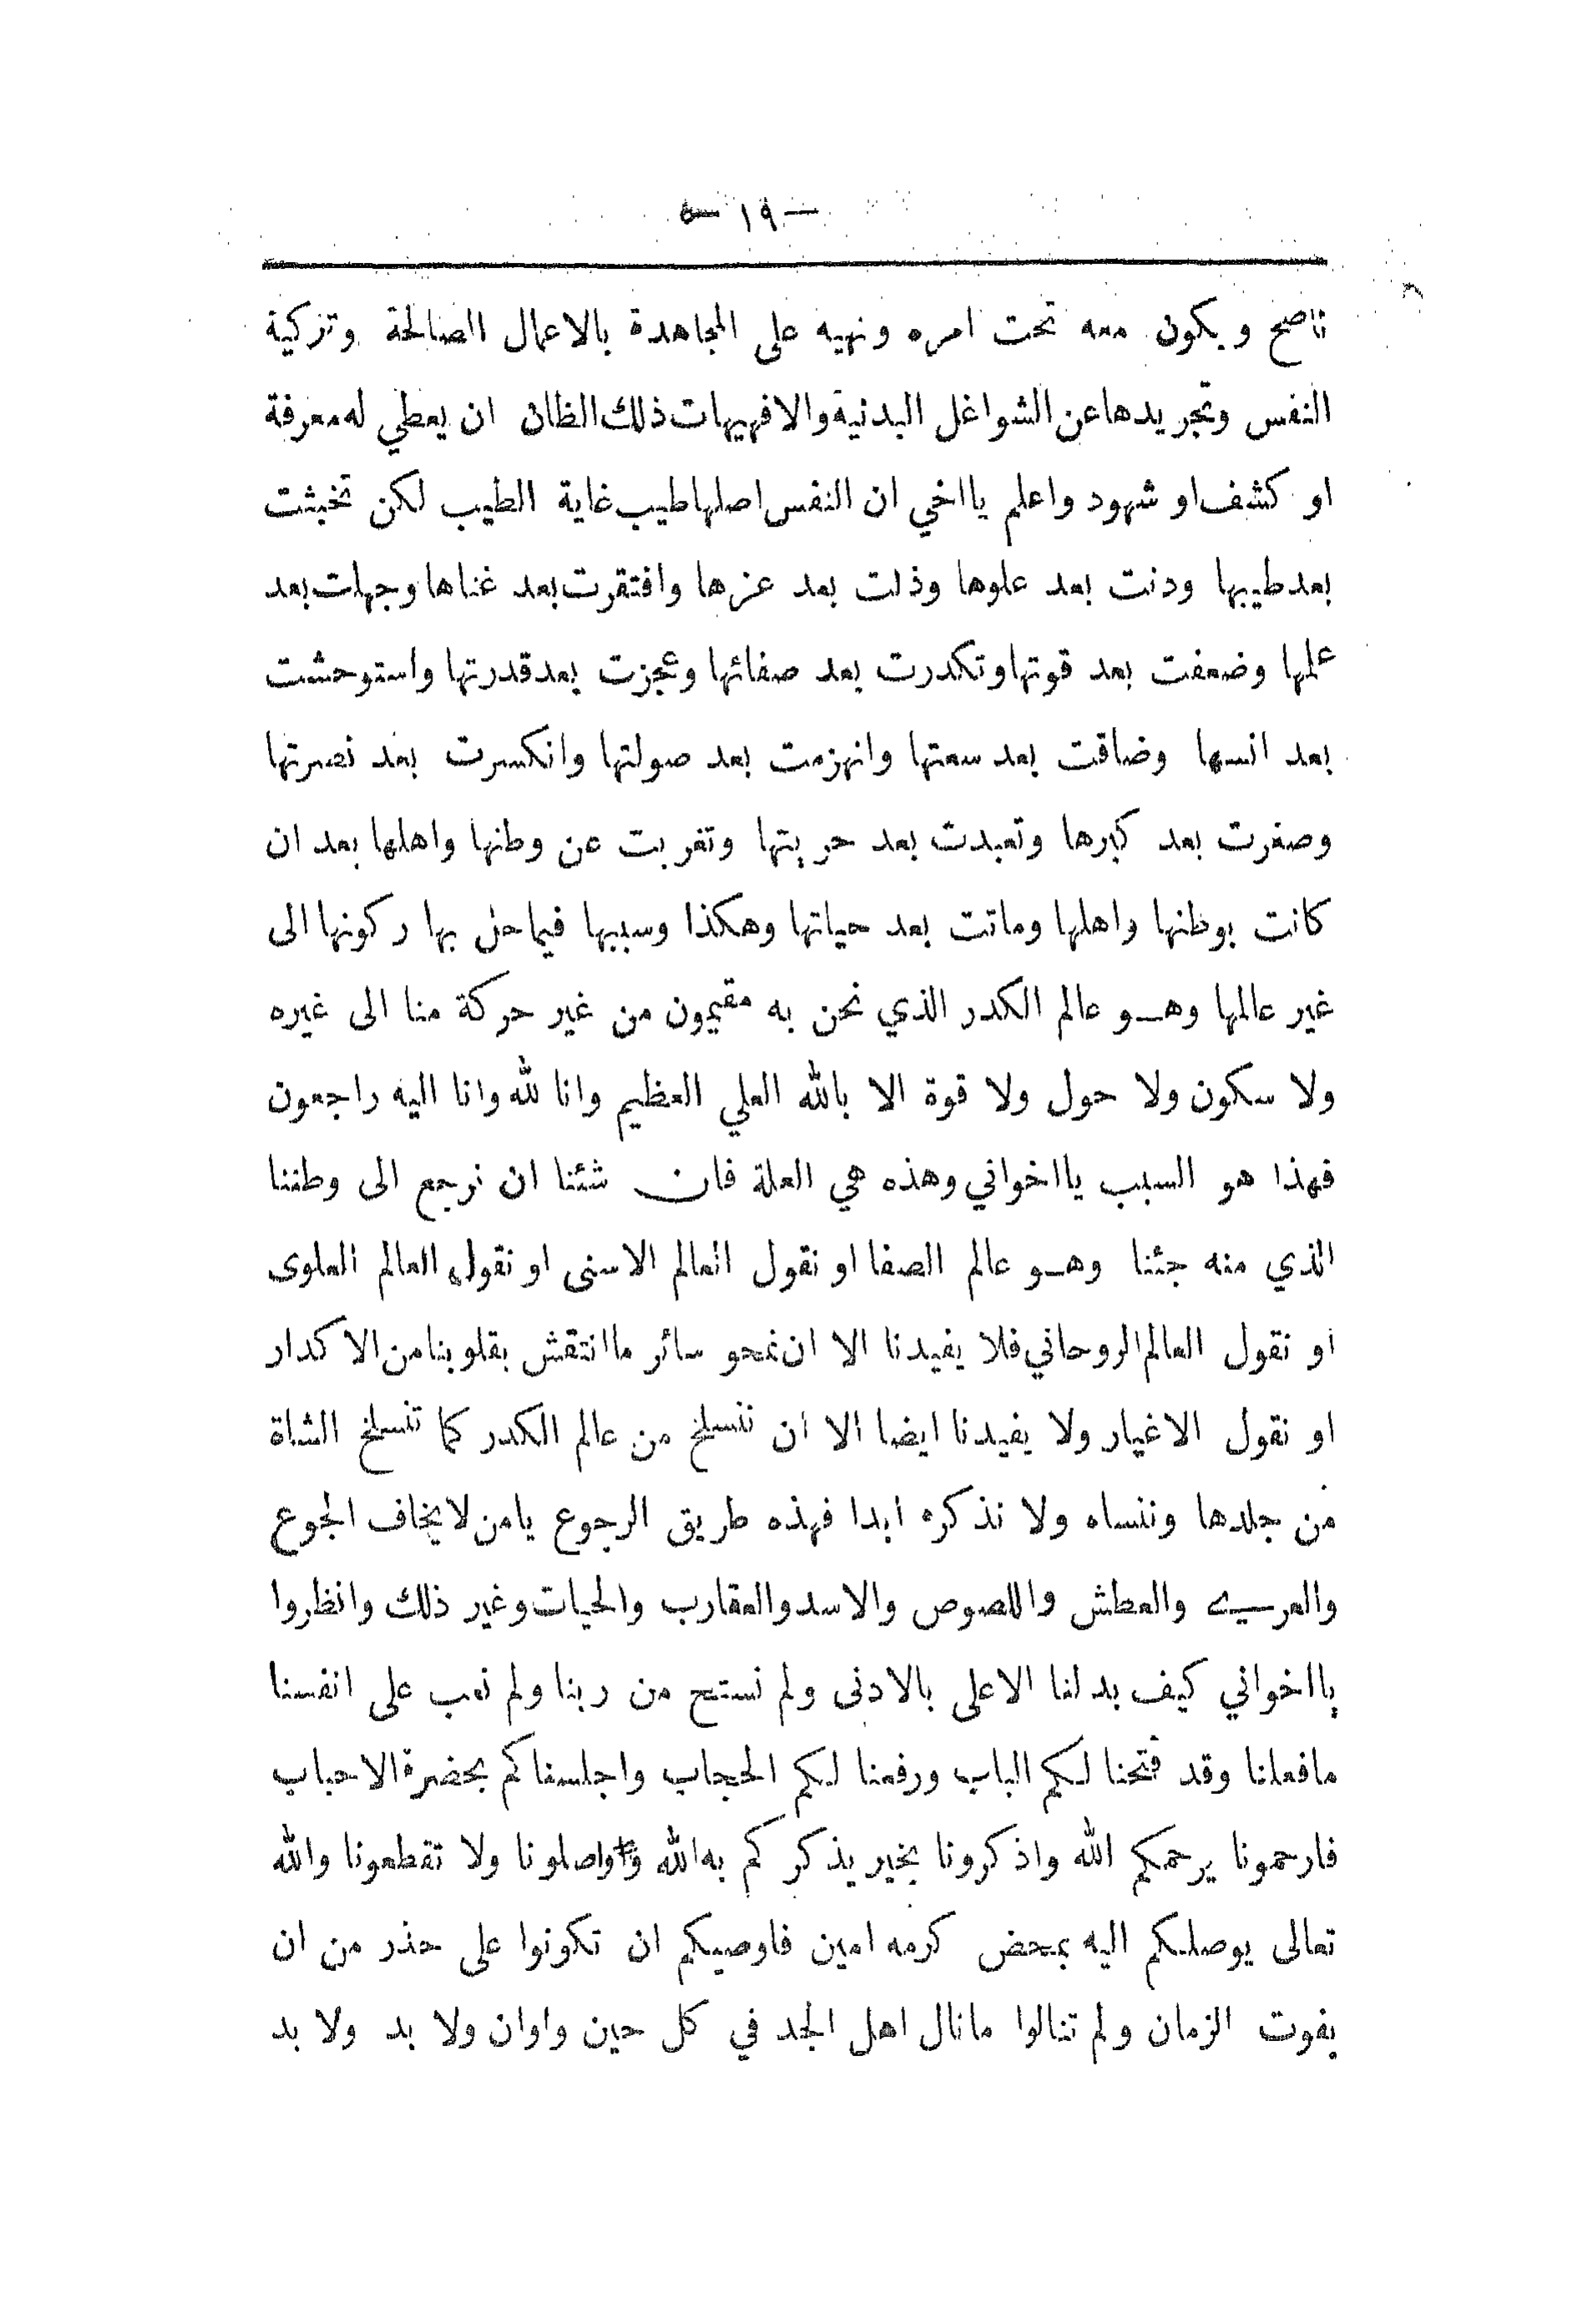 — ١٩ —
ناصح ويكون معه تحت امره ونهيه على المجاهدة بالاعمال الصالحة وتزكية
النفس وتجريدها عن الشواغل البدنية والا فهيهات ذلك الظان ان يعطي له معرفة
او كشف او شهود واعلم يا اخي ان النفس اصلها طيب غاية الطيب لكن تخبثت
بعد طيبها ودنت بعد علوها وذلت بعد عزها وافتقرت بعد غناها وجهلت بعد
علمها وضعفت بعد قوتها وتكدرت بعد صفائها وعجزت بعد قدرتها واستوحشت
بعد انسها وضاقت بعد سعتها وانهزمت بعد صولتها وانكسرت بعد نصرتها
وصغرت بعد كبرها وتعبدت بعد حريتها وتغربت عن وطنها واهلها بعد ان
كانت بوطنها واهلها وماتت بعد حياتها وهكذا وسببها فيما حل بها ركونها الى
غير عالمها وهـو عالم الكدر الذي نحن به مقيمون من غير حركة منا الى غيره
ولا سكون ولا حول ولا قوة الا بالله العلي العظيم وانا لله وانا اليه راجعون
فهذا هو السبب يا اخواني وهذه هي العلة فان شئنا ان نرجع الى وطننا
الذي منه جئنا وهـو عالم الصفا او نقول العالم الاسنى او نقول العالم العلوى
او نقول العالم الروحاني فلا يفيدنا الا ان نمحو سائر ما انتقش بقلوبنا من الاكدار
او نقول الاغيار ولا يفيدنا ايضا الا ان ننسلخ من عالم الكدر كما تنسلخ الشاة
من جلدها وننساه ولا نذكره ابدا فهذه طريق الرجوع يا من لا يخاف الجوع
والعرـي والعطش واللصوص والاسد والعقارب والحيات وغير ذلك وانظروا
يا اخواني كيف بدلنا الاعلى بالادنى ولم نستح من ربنا ولم نعب على انفسنا
ما فعلنا وقد فتحنا لكم الباب ورفعنا لكم الحجاب واجلسناكم بحضرة الاحباب
فارحمونا يرحمكم الله واذكرونا بخير يذكركم به الله وواصلونا ولا تقطعونا والله
تعالى يوصلكم اليه بمحض كرمه امين فاوصيكم ان تكونوا على حذر من ان
يفوت الزمان ولم تنالوا ما نال اهل الجد في كل حين واوان ولا بد ولا بد